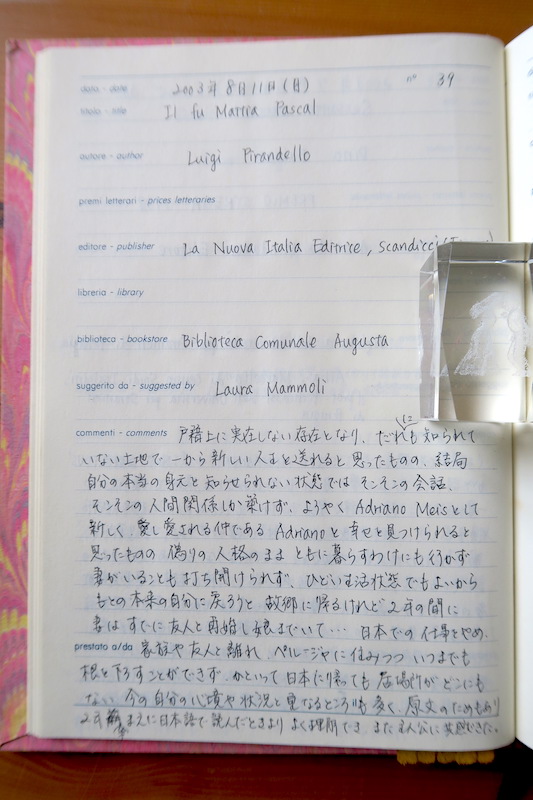 data - date 2003年8月11日(日) n° 39
titolo - title Il fu Mattia Pascal
autore - author Luigi Pirandello
premi letterari - prices letteraries
editore - publisher La Nuova Italia Editrice, Scandicci (
libreria - library
biblioteca - bookstore Biblioteca Comunale Augusta
suggerito da - suggested by Laura Mammoli
commenti - comments 戸籍上に実在しない存在となり、だれにも知られて
いない土地で一から新しい人生を送れると思ったものの、結局
自分の本当の身元を知らせられない状態ではそこそこの会話、
そこそこの人間関係しか築けず、ようやく Adriano Meisとして
新しく、愛し愛される仲である Adrianoと幸せを見つけられると
思ったものの 偽りの人格のまま ともに暮らすわけにも行かず
妻がいることも打ち開けられず、ひどい生活状態でもよいから
もとの本来の自分に戻ろうと 故郷に帰るけれど2年の間に
妻はすでに友人と再婚し娘までいて… 日本での仕事をやめ、
prestato a/da 家族や友人と離れ、ペルージャに住みつつ いつまでも
根を下すことができず、かといって日本に帰っても居場所がどこにも
ない今の自分の心境や状況と重なるところも多く、原文のためもあり
2年 まえに日本語で読んだときより よく理解でき、また主人公に共感できた。